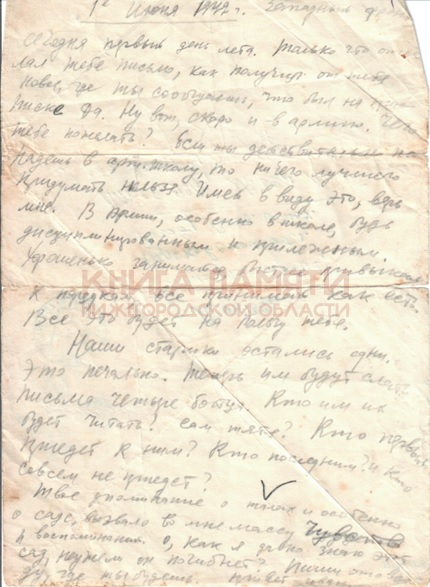 1е Июня 1942 г. Западный ф
Сегодня первый день лета. Только что
лал тебе письмо, как получил от тебя
новое, где ты сообщаешь, что был на
писке
Ну вот, скоро и в армию. Чего
тебе пожелать? Если ты действительно по-
падешь в арт. школу, то ничего лучшего
придумать нельзя. Имей в виду это, верь
мне. В Армии, особенно в школе, будь
дисциплинированным и прилежным.
Хорошенько
привыкай
к порядкам, все принимай как есть.
Все это будет на пользу тебе.
КНИГА ПАМЯТИ
НИЖЕГОРОДСКОЙ ОБЛАСТИ
Наши старики остались одни.
Это печально. Теперь им будут слать
письма четыре
Кто им их
будет читать? Сам тятя? Кто первый
придет к ним? Кто последним? и кто
совсем не придет?
Твое упоминание о
и особенно
о саде, вызвало во мне массу чувств
и воспоминаний. О, как я давно знаю этот
сад, неужели он погибнет? Пиши
где ты будешь. Привет